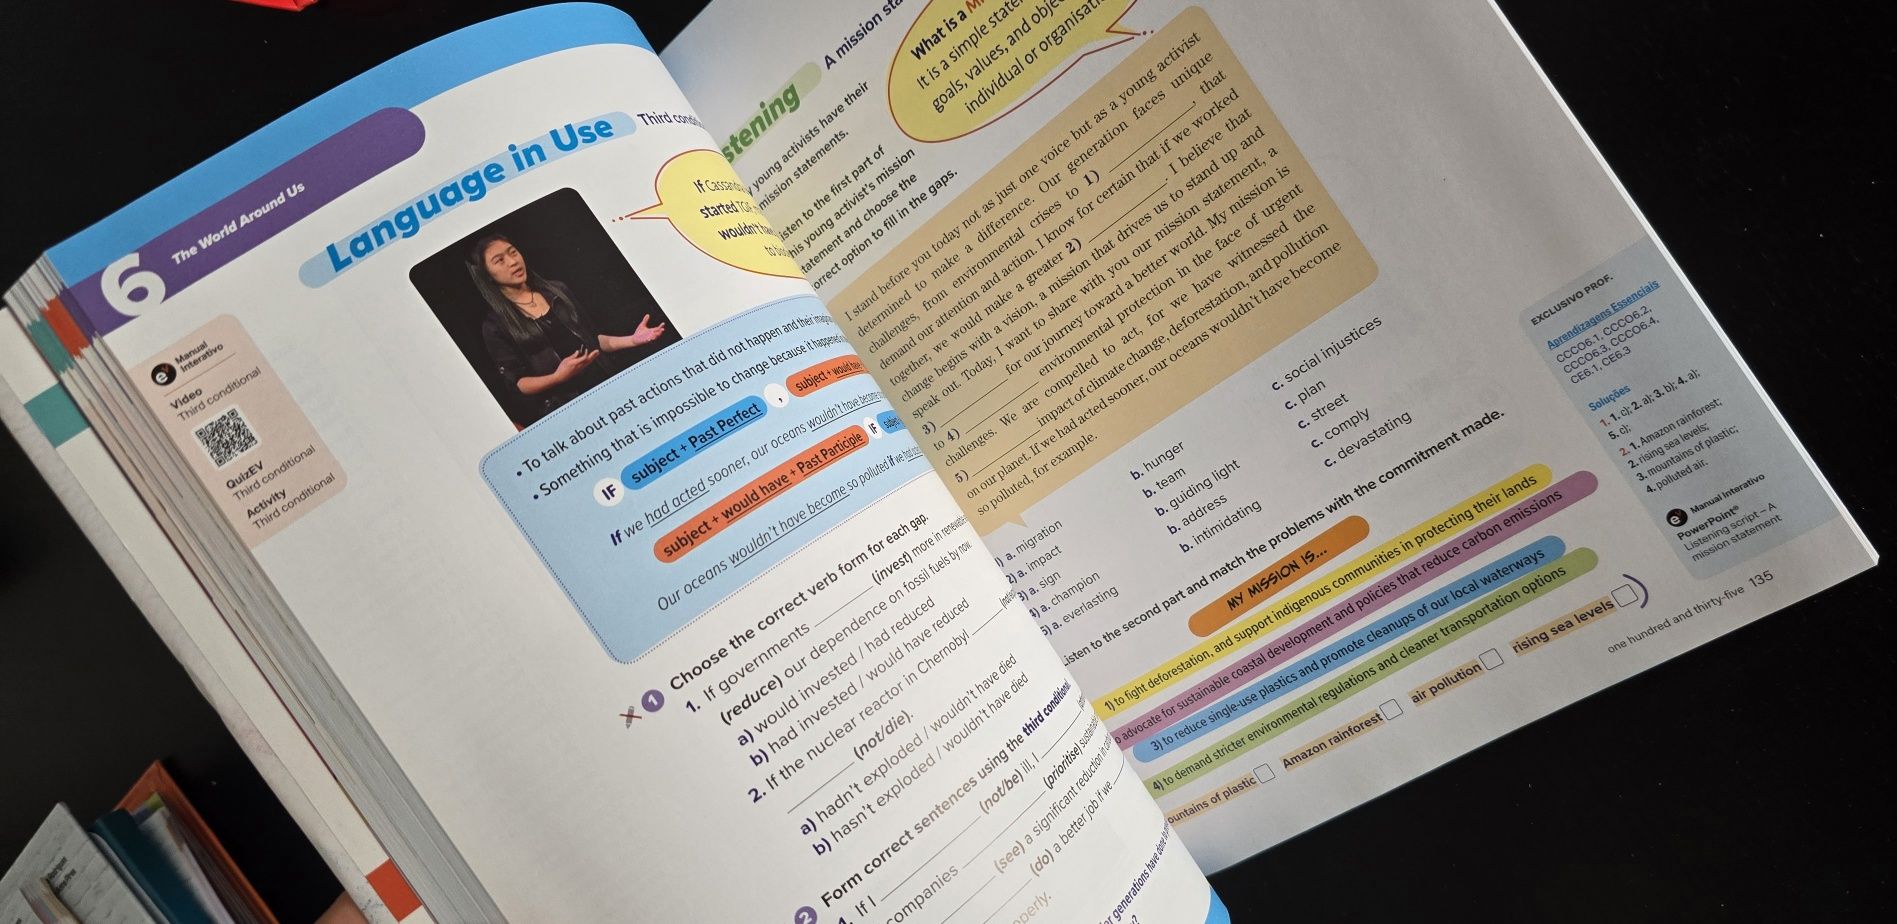 6
The World Around Us
Manual
Interativo
Video
Third conditional
QuizEV
Third conditional
Activity
Third conditional
Language in Use
Third
If
started
wouldn't
• To talk about past actions that did not happen and their
• Something that is impossible to change because it happened
IF subject + Past Perfect , subject + would have
If we had acted sooner, our oceans wouldn't have become
subject + would have + Past Participle IF
Our oceans wouldn't have become so polluted if we had
1 Choose the correct verb form for each gap.
1. If governments ______ (invest) more in
(reduce) our dependence on fossil fuels by now.
a) would invested / had reduced
b) had invested / would have reduced
2. If the nuclear reactor in Chernobyl ______
______ (not/die).
a) hadn't exploded / wouldn't have died
b) hasn't exploded / wouldn't have died
2 Form correct sentences using the third conditional.
1. If I ______ (not/be) ill, I ______
companies ______ (prioritise)
______ (see) a significant reduction in
______ (do) a better job if we ______
generations have done
A mission
What is a
It is a simple
goals, values, and
individual or
young activists have their
mission statements.
to the first part of
this young activist's mission
statement and choose the
correct option to fill in the gaps.
I stand before you today not as just one voice but as a young activist
determined to make a difference. Our generation faces unique
challenges, from environmental crises to 1) ______, that
demand our attention and action. I know for certain that if we worked
together, we would make a greater 2) ______. I believe that
change begins with a vision, a mission that drives us to stand up and
speak out. Today, I want to share with you our mission statement, a
3) ______ for our journey toward a better world. My mission is
to 4) ______ environmental protection in the face of urgent
challenges. We are compelled to act, for we have witnessed the
5) ______ impact of climate change, deforestation, and pollution
on our planet. If we had acted sooner, our oceans wouldn't have become
so polluted, for example.
1) a. migration b. hunger c. social injustices
2) a. impact b. team c. plan
3) a. sign b. guiding light c. street
4) a. champion b. address c. comply
5) a. everlasting b. intimidating c. devastating
Listen to the second part and match the problems with the commitment made.
MY MISSION IS...
1) to fight deforestation, and support indigenous communities in protecting their lands
advocate for sustainable coastal development and policies that reduce carbon emissions
3) to reduce single-use plastics and promote cleanups of our local waterways
4) to demand stricter environmental regulations and cleaner transportation options
of plastic
Amazon rainforest
air pollution
rising sea levels
one hundred and thirty-five 135
EXCLUSIVO PROF.
Aprendizagens Essenciais
CCCO6.1, CCCO6.2,
CCCO6.3, CCCO6.4,
CE6.1, CE6.3
Soluções
1. 1. c); 2. a); 3. b); 4. a);
5. c);
2. 1. Amazon rainforest;
2. rising sea levels;
3. mountains of plastic;
4. polluted air.
Manual Interativo
PowerPoint®
Listening script – A
mission statement